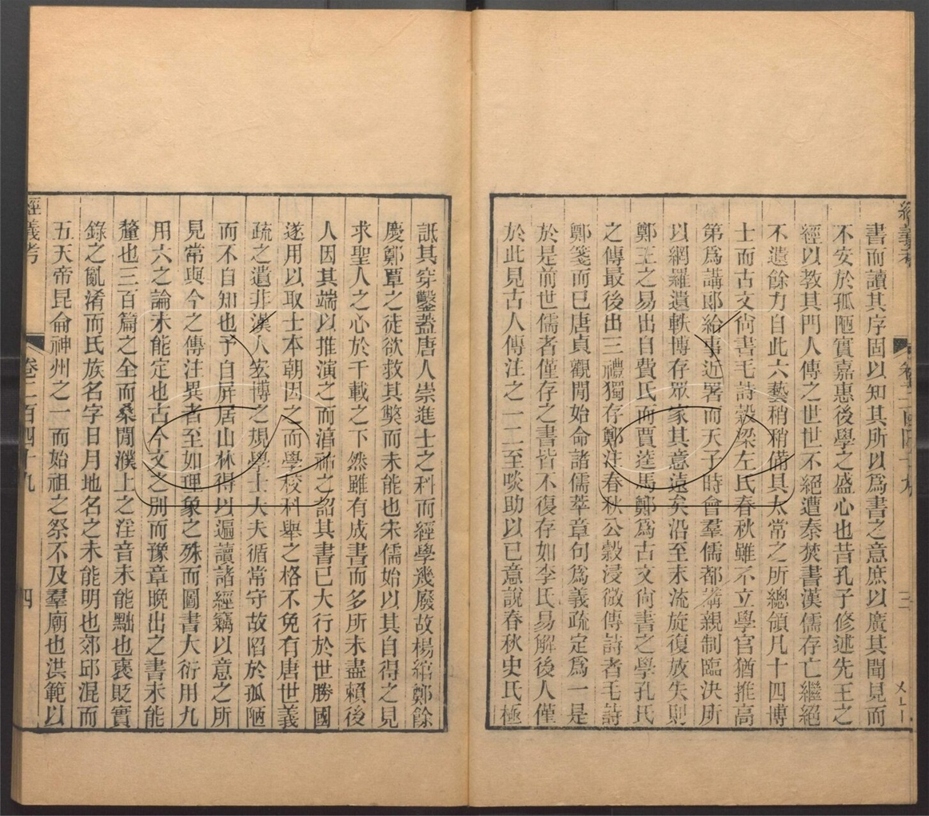 書而讀其序固以知其所以為書之意庶以廣其聞見而
不安於孤陋實嘉惠後學之盛心也昔孔子修述先王之
經以教其門人傳之世世不絕遭秦焚書漢儒存亡繼絕
不遺餘力自此六藝稍稍備具太常之所總領凡十四博
士而古文尚書毛詩穀梁左氏春秋雖不立學官猶推高
第為講郎給事近署而天子時會羣儒都講親制臨決所
以網羅遺軼博存眾家其意遠矣沿至末流旋復放失則
鄭王之易出自費氏而賈逵馬鄭為古文尚書之學孔氏
之傳最後出三禮獨存鄭注春秋公穀浸微傳詩者毛詩
鄭箋而已唐貞觀間始命諸儒萃章句為義疏定為一是
於是前世儒者僅存之書皆不復存如李氏易解後人僅
於此見古人傳注之一二至啖助以己意說春秋史氏極
詆其穿鑿蓋唐人崇進士之科而經學幾廢故楊綰鄭餘
慶鄭覃之徒欲救其獘而未能也宋儒始以其自得之見
求聖人之心於千載之下然雖有成書而多所未盡賴後
人因其端以推演之而淳祐之詔其書已大行於世勝國
遂用以取士本朝因之而學校科舉之格不免有唐世義
疏之遺非漢人宏博之規學士大夫循常守故陷於孤陋
而不自知也予自屏居山林得以遍讀諸經竊以意之所
見常與今之傳注異者至如理象之殊而圖書大衍用九
用六之論未能定也古今文之別而豫章晚出之書未能
釐也三百篇之全而桑間濮上之淫音未能黜也褒貶實
錄之亂淆而氏族名字日月地名之未能明也郊邱混而
五天帝昆侖神州之一而始祖之祭不及羣廟也洪範以
經義考
卷二百四十九
四